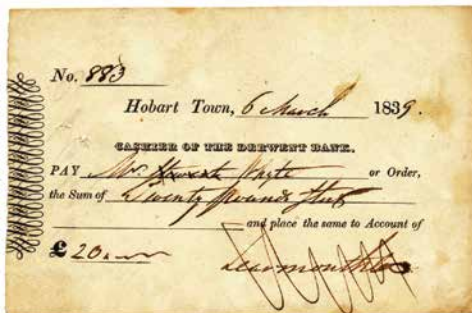 No. 883
Hobart Town, 6 March 1839.
CASHIER OF THE DERWENT BANK.
PAY Mr. Whyte or Order,
the Sum of Twenty Pounds Ster
and place the same to Account of
£ 20
Learmonth &Co